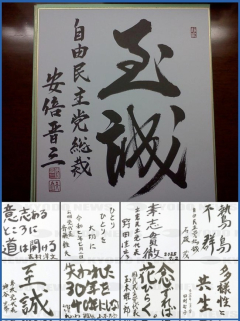 至誠
自由民主党総裁
安倍晋三
鷙鳥
不群
石破茂
素志貫徹
野田佳彦
ひとり
ひとりを
大切に
意志ある
ところに
道は開ける
吉村洋文
多様性と
共生
念ずれば
花ひらく
失われた
30年を
至誠